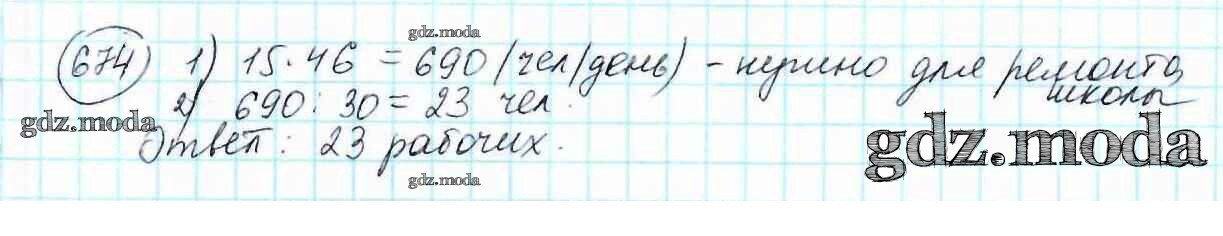 gdz.moda
674 1) 15·46 = 690 (чел/день) - нужно для ремонта
школы
2) 690 : 30 = 23 чел.
gdz.moda
Ответ: 23 рабочих.
gdz.moda
gdz.moda